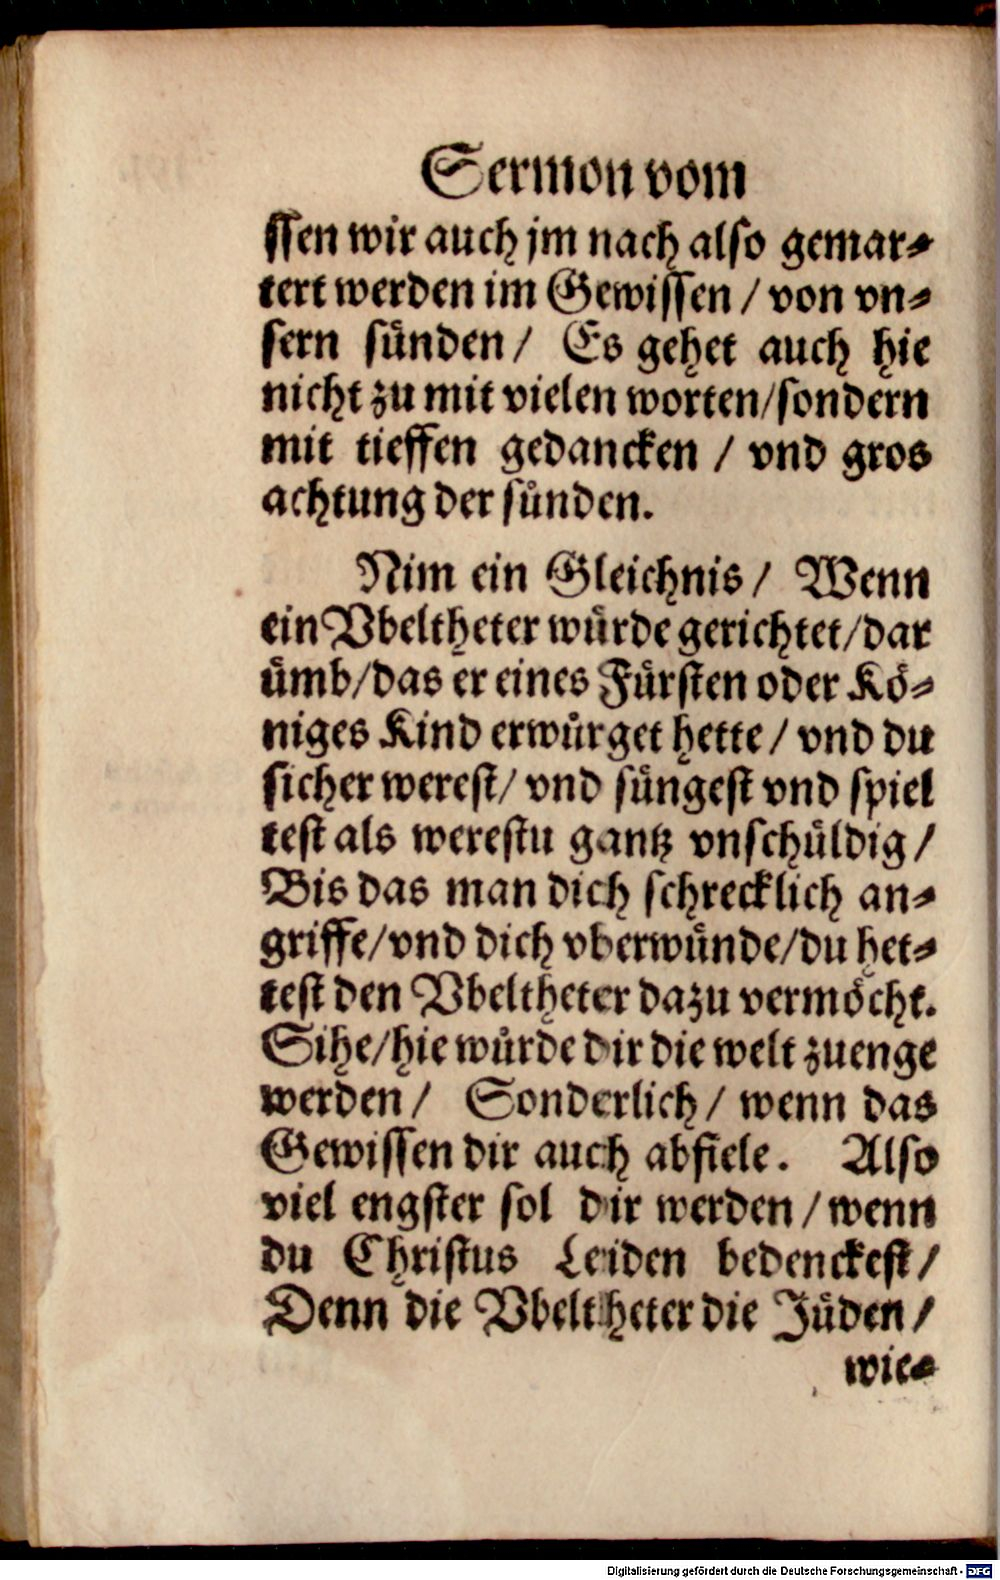 Sermon vom
ssen wir auch jm nach also gemar-
tert werden im Gewissen / von vn-
sern sünden / Es gehet auch hie
nicht zu mit vielen worten/sondern
mit tieffen gedancken / vnd gros
achtung der sünden.
Nim ein Gleichnis / Wenn
ein Vbeltheter würde gerichtet/dar
ümb/das er eines Fürsten oder Kö-
niges Kind erwürget hette / vnd du
sicher werest/ vnd süngest vnd spiel
test als werestu gantz vnschüldig /
Bis das man dich schrecklich an-
griffe/vnd dich vberwünde/du het-
test den Vbeltheter dazu vermöcht.
Sihe/hie würde dir die welt zuenge
werden / Sonderlich / wenn das
Gewissen dir auch abfiele. Also
viel engster sol dir werden / wenn
du Christus Leiden bedenckest /
Denn die Vbeltheter die Jüden /
wie-
Digitalisierung gefördert durch die Deutsche Forschungsgemeinschaft - DFG